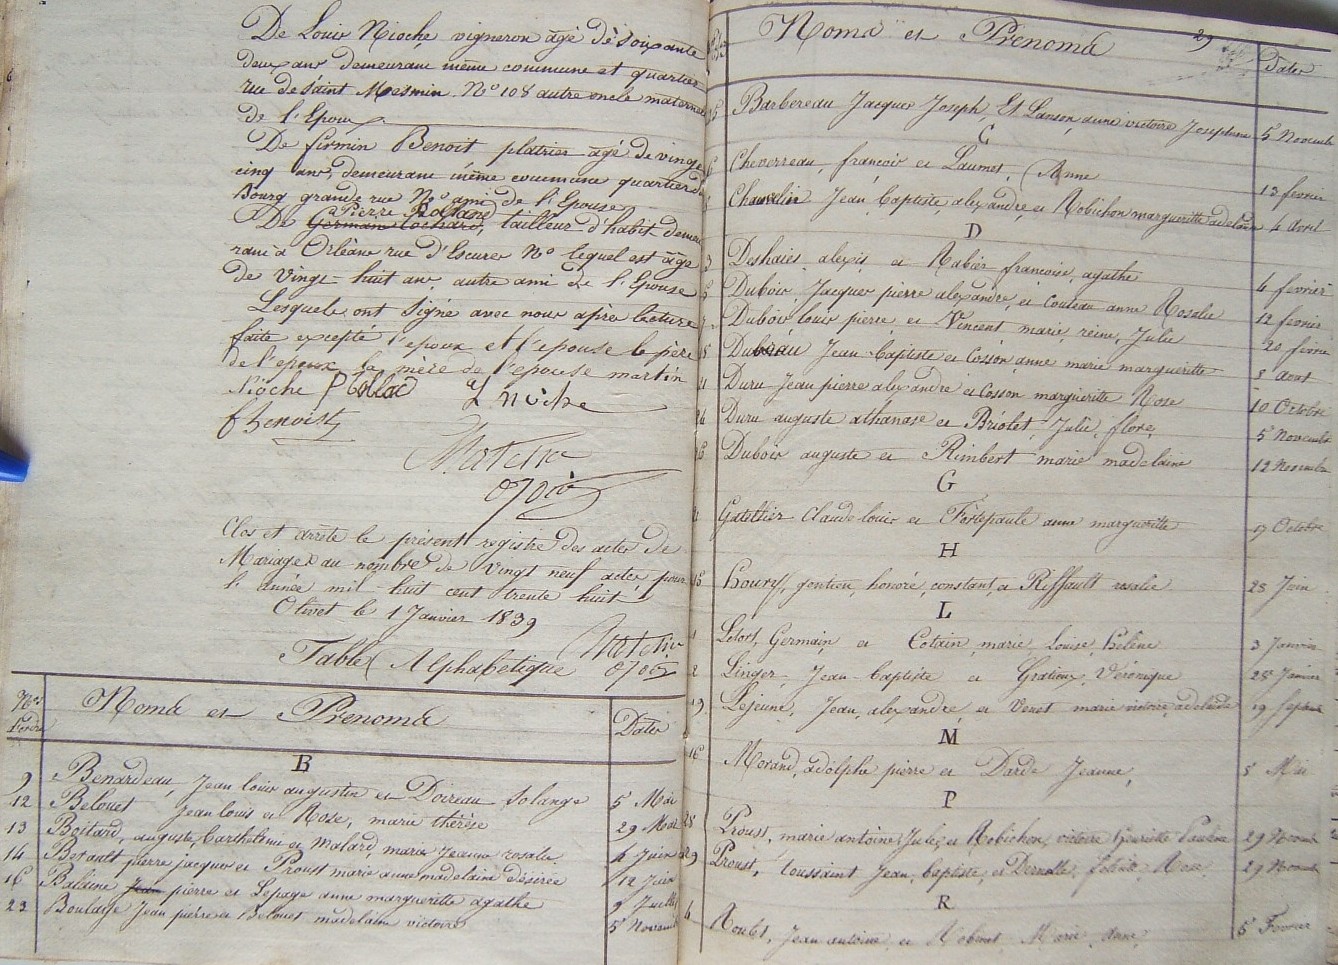 De Louis Rioche, vigneron âgé de soixante
deux ans demeurant même commune et quartier
rue de Saint Mesmin N° 108 autre oncle maternel
de l'Epoux
De firmin Benoit platrier âgé de vingt
cinq ans, demeurant même commune quartier du
Bourg grande rue N° ami de l'Epouse
Pierre Rolland
De Germain Cochard, tailleur d'habit demeu
rant à Orléans rue d'Escures N° lequel est âgé
de Vingt-huit ans autre ami de l'Epouse
Lesquels ont signé avec nous après lecture
faite excepté l'epoux et l'epouse le père
de l'epoux la mère de l'epouse martin
Rioche P Rollad
fBenoist
Clos et arrêté le présent registre des actes de
Mariages au nombre de Vingt neuf actes pour
l'année mil huit cent trente huit
Olivet le 1 Janvier 1839
Table Alphabetique
Nos d'ordre Noms et Prenoms Dates
B
9 Benardeau, Jean louis augustin et Doireau Solange 5 Mai
12 Belouet Jean louis et Rose, marie thérèse 29 Mai
13 Boitard, auguste, barthélemi et Malard, marie Jeanne rosalie 4 Juin
14 Berault pierre jacques et Proust marie anne madelaine désirée 12 Juin
16 Baldine Jean pierre et Lepage anne margueritte agathe 9 Juillet
23 Boulard Jean pierre et Belouet madelaine victoire 5 Novembre
29
Noms et Prenoms Dates
25 Barbereau Jacques Joseph, Et Lanson anne victoire Josephine 5 Novembre
C
6 Cheverreau, françois et Laumet, Anne 13 fevrier
8 Chauvelin Jean baptiste, alexandre et Robichon margueritte adelaide 4 avril
D
3 Deshaies alexis et Rabier françoise, agathe 4 fevrier
5 Dubois, Jacques pierre alexandre, et Couteau anne Rosalie 12 fevrier
7 Dubois louis pierre, et Vincent marie, reine, Julie 20 fevrier
18 Dubreau Jean baptiste et Cosson anne marie margueritte 8 aout
21 Duru Jean pierre alexandre et Cosson margueritte Rose 10 Octobre
24 Duru auguste athanase et Briolet, Julie, flore, 5 Novembre
26 Dubois auguste et Rimbert marie madelaine 12 Novembre
G
Gatellier Claude louis et Fortepaule anne margueritte 17 Octobre
H
15 houry, gentien, honoré, constant, et Riffault rosalie 28 Juin
L
1 Letort, Germain et Cotain marie, Louise, Hélène 3 Janvier
2 Linger, Jean-baptiste et Gratioux, Véronique 28 Janvier
19 Lejeune, Jean, alexandre, et Venet marie victoire, adelaide 19 Septembre
M
10 Morand, adolphe pierre et Darde Jeanne, 5 Mai
P
28 Proust, marie antoine Jules, et Robichon, victoire henriette Pauline 29 Novembre
29 Proust, toussaint Jean, baptiste, et felicite Rose 29 Novembre
R
4 Jean antoine et Robinet Marie anne, 5 Fevrier